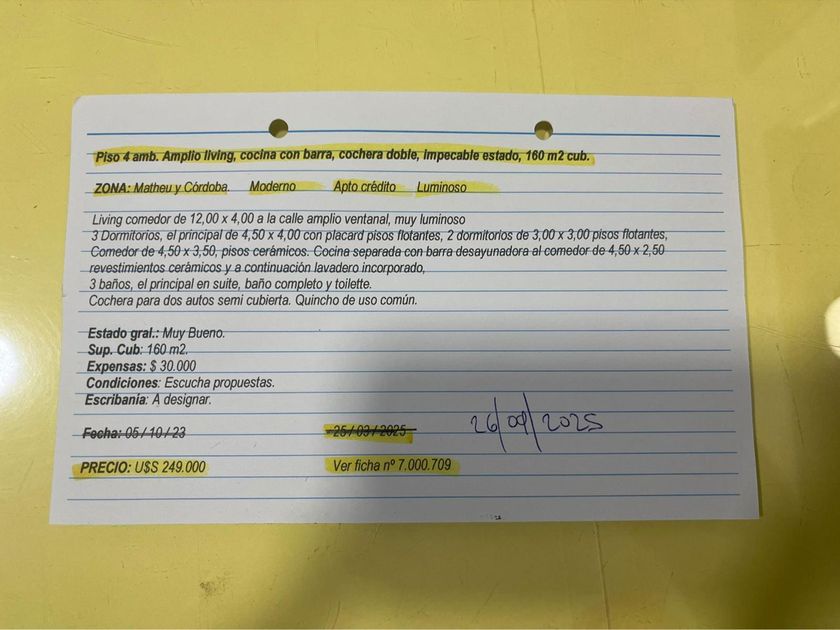 Piso 4 amb. Amplio living, cocina con barra, cochera doble, impecable estado, 160 m2 cub.
ZONA: Matheu y Córdoba. Moderno Apto crédito Luminoso
Living comedor de 12,00 x 4,00 a la calle amplio ventanal, muy luminoso
3 Dormitorios, el principal de 4,50 x 4,00 con placard pisos flotantes, 2 dormitorios de 3,00 x 3,00 pisos flotantes,
Comedor de 4,50 x 3,50, pisos cerámicos. Cocina separada con barra desayunadora al comedor de 4,50 x 2,50
revestimientos cerámicos y a continuación lavadero incorporado,
3 baños, el principal en suite, baño completo y toilette.
Cochera para dos autos semi cubierta. Quincho de uso común.
Estado gral.: Muy Bueno.
Sup. Cub: 160 m2.
Expensas: $ 30.000
Condiciones: Escucha propuestas.
Escribanía: A designar.
Fecha: 05 / 10 / 23 25 / 03 / 2025 26/09/2025
PRECIO: U$S 249.000 Ver ficha nº 7.000.709